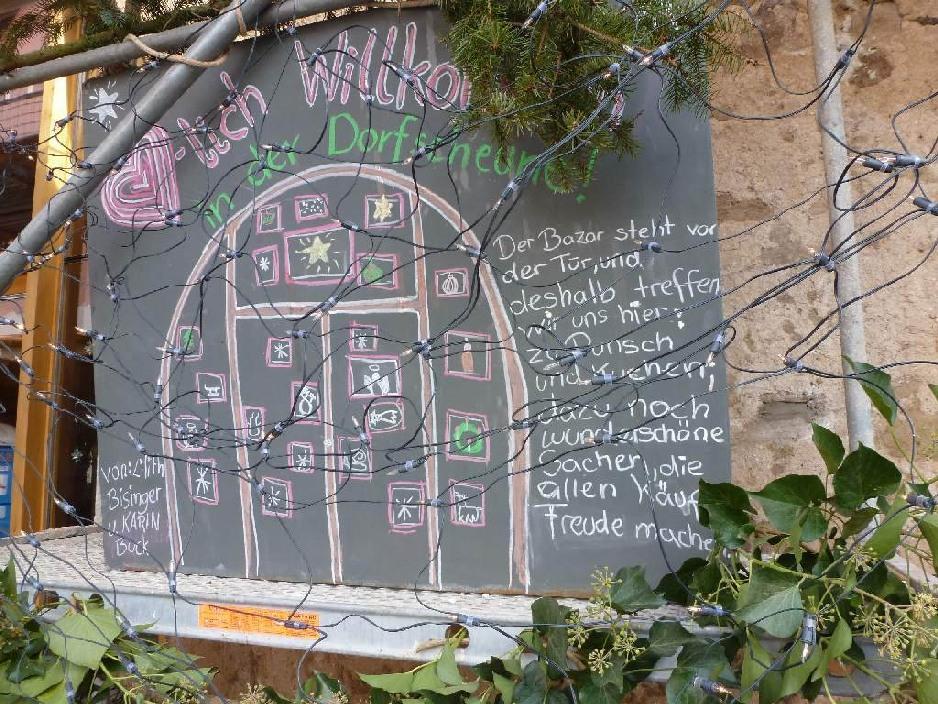 -lich Willko
in der Dorfscheune!
Der Bazar steht vor
der Tür, und
deshalb treffen
wir uns hier:
zu Punsch
und Kuchen,
dazu noch
wunderschöne
Sachen, die
allen
Freude mache
von: Lilith
Bisinger
u. KARIN
Buck